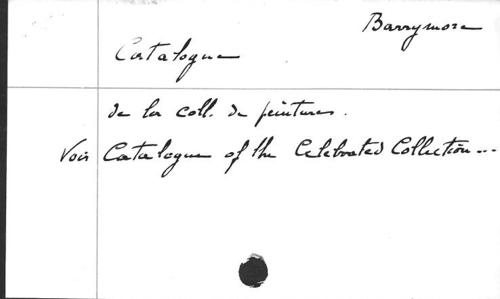 Barrymore
Catalogue
de la coll. de peintures.
Voir Catalogue of the Celebrated Collection...